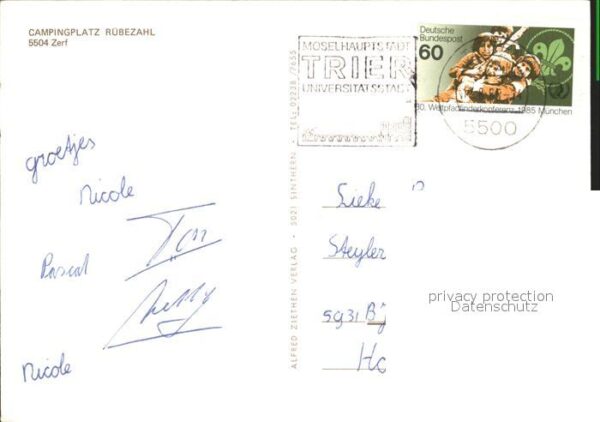 CAMPINGPLATZ RÜBEZAHL
5504 Zerf
MOSELHAUPTSTADT
TRIER
UNIVERSITÄTSSTADT
Deutsche
Bundespost
60
30. Weltpfadfinderkonferenz 1985 München
5500
groetjes
Nicole
Ton
Pascal
Nelly
Nicole
ALFRED ZIETHEN VERLAG · 5021 SINTHERN · TEL. 02238/7655
Lieke
Steyler
5931 B
Ho
privacy protection
Datenschutz